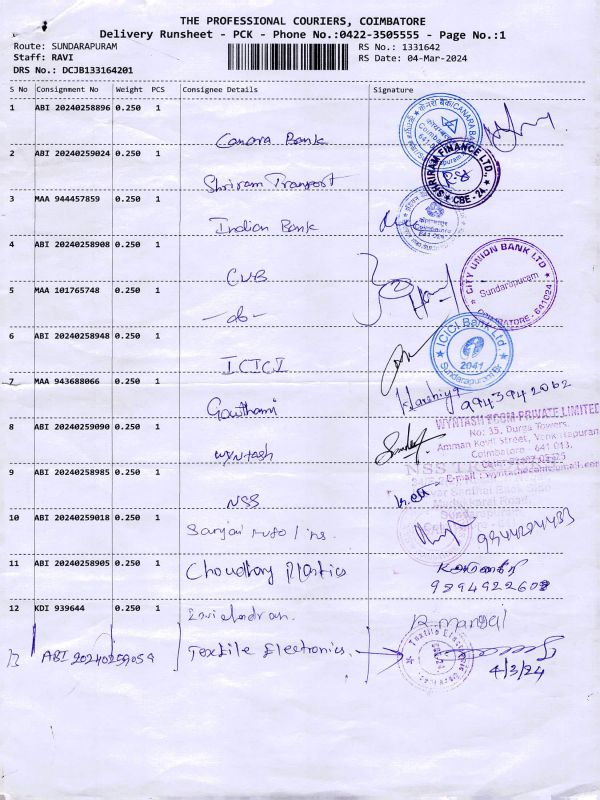 THE PROFESSIONAL COURIERS, COIMBATORE
Delivery Runsheet - PCK - Phone No.:0422-3505555 - Page No.:1
Route: SUNDARAPURAM
RS No.: 1331642
Staff: RAVI
RS Date: 04-Mar-2024
DRS No.: DCJB133164201
S No Consignment No Weight PCS Consignee Details Signature
1 ABI 20240258896 0.250 1
Canara Bank
2 ABI 20240259024 0.250 1
Shriram Transport
SHRIRAM FINANCE LTD.
CBE - 24
3 MAA 944457859 0.250 1
Indian Bank
4 ABI 20240258908 0.250 1
CUB
CITY UNION BANK LTD
Sundarapuram
COIMBATORE - 641024
5 MAA 101765748 0.250 1
-do-
6 ABI 20240258948 0.250 1
ICICI
ICICI Bank Ltd
2041
Sundarapuram Br
7 MAA 943688066 0.250 1
Gowthami
Harshiya 9943942062
8 ABI 20240259090 0.250 1
Wyntash
WYNTASH ROOM PRIVATE LIMITED
No: 35, Durga Towers,
Amman Kovil Street,
Coimbatore - 641 013.
9 ABI 20240258985 0.250 1
NSS
10 ABI 20240259018 0.250 1
11 ABI 20240258905 0.250 1
Choudhary Plastics
12 KDI 939644 0.250 1
13 ABI 20240259059 Textile Electronics.
4/3/24